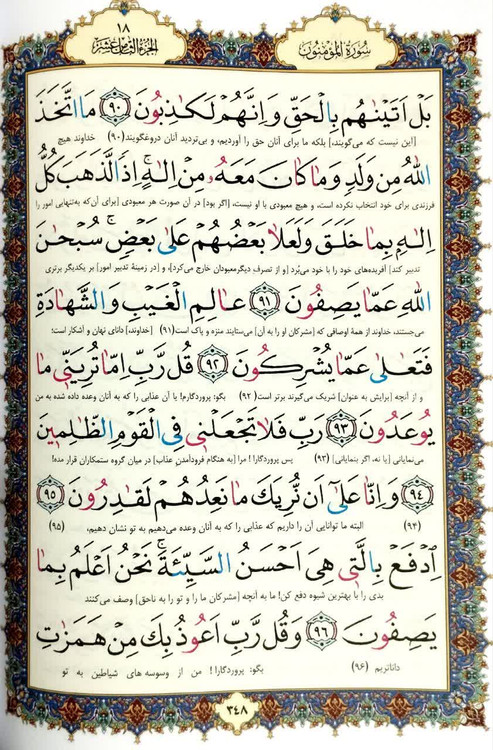 سورة المؤمنون
١٨
الجزء الثامن عشر
بَلْ اَتَيْنٰهُم بِالْحَقِّ وَ اِنَّهُمْ لَكٰذِبُونَ ﴿٩٠﴾ مَا اتَّخَذَ
[این نیست که می‌گویند،] بلکه ما برای آنان حق را آوردیم، و بی‌تردید آنان دروغگویند(۹۰) خداوند هیچ
اللّٰهُ مِن وَلَدٍ وَ ما كانَ مَعَهُ مِنْ اِلٰهٍ ۚ اِذًا لَذَهَبَ كُلُّ
فرزندی برای خود انتخاب نکرده است، و هیچ معبودی با او نیست، [اگر بود] در آن صورت هر معبودی [برای آن‌که به‌تنهایی امور را
اِلٰهٍ بِما خَلَقَ وَ لَعَلا بَعْضُهُمْ عَلىٰ بَعْضٍ ۚ سُبْحٰنَ
تدبیر کند] آفریده‌های خود را با خود می‌بُرد [و از تصرف دیگرمعبودان خارج می‌کرد]، و [در زمینهٔ تدبیر امور] بر یکدیگر برتری
اللّٰهِ عَمّا يَصِفُونَ ﴿٩١﴾ عالِمِ الْغَيْبِ وَ الشَّهادَةِ
می‌جستند، خداوند از همهٔ اوصافی که [مشرکان او را به آن] می‌ستایند منزه و پاک است(۹۱) [خداوند،] دانای نهان و آشکار است؛
فَتَعٰلىٰ عَمّا يُشْرِكُونَ ﴿٩٢﴾ قُل رَبِّ اِمّا تُرِيَنّي ما
و از آنچه [برایش به عنوان] شریک می‌گیرند برتر است(۹۲) بگو: پروردگارم! یا آن عذابی را که به آنان وعده داده شده به من
يُوعَدُونَ ﴿٩٣﴾ رَبِّ فَلا تَجْعَلْني فِي الْقَوْمِ الظّٰلِمينَ
می‌نمایانی [یا نه، اگر بنمایانی] (۹۳) پس پروردگارا ! مرا [به هنگام فرودآمدنِ عذاب] در میان گروه ستمکاران قرار مده!
﴿٩٤﴾ وَ اِنّا عَلىٰ اَن نُرِيَكَ ما نَعِدُهُمْ لَقٰدِرُونَ ﴿٩٥﴾
(۹۴) البته ما توانایی آن را داریم که عذابی را که به آنان وعده می‌دهیم به تو نشان دهیم، (۹۵)
اِدْفَعْ بِالَّتي هِيَ اَحْسَنُ السَّيِّئَةَ ۚ نَحْنُ اَعْلَمُ بِما
بدی را با بهترین شیوه دفع کن! ما به آنچه [مشرکان ما را و تو را به ناحق] وصف می‌کنند
يَصِفُونَ ﴿٩٦﴾ وَ قُل رَبِّ اَعُوذُ بِكَ مِنْ هَمَزٰتِ
داناتریم (۹۶) بگو: پروردگارا ! من از وسوسه های شیاطین به تو
٣٤٨